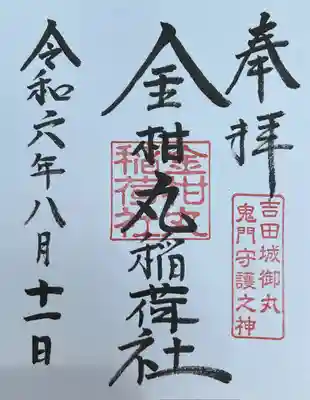 奉拝
吉田城御丸
鬼門守護之神
金柑丸稲荷社
令和六年八月十一日